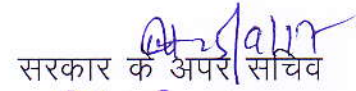 25/9/17
सरकार के अपर सचिव